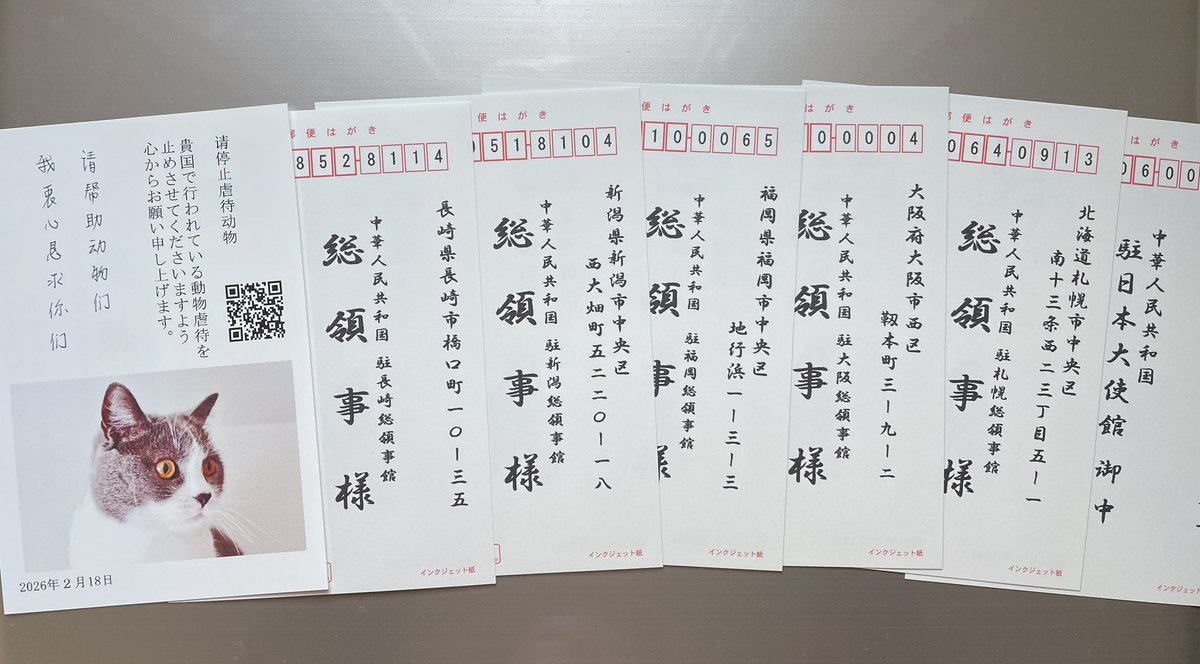 请停止虐待动物
貴国で行われている動物虐待を
止めさせてくださいますよう
心からお願い申し上げます。
请帮助动物们
我衷心恳求你们
2026年2月18日
郵便はがき
8528114
長崎県長崎市橋口町一〇ー三五
中華人民共和国 駐長崎総領事館
総領事様
インクジェット紙
便はがき
9518104
新潟県新潟市中央区
西大畑町五二二〇ー一八
中華人民共和国 駐新潟総領事館
総領事様
インクジェット紙
便はがき
100065
福岡県福岡市中央区
地行浜一ー三ー三
中華人民共和国 駐福岡総領事館
総領事様
インクジェット紙
はがき
00004
大阪府大阪市西区
靱本町三ー九ー二
中華人民共和国 駐大阪総領事館
総領事様
インクジェット紙
便はがき
0640913
北海道札幌市中央区
南十三条西二三丁目五ー一
中華人民共和国 駐札幌総領事館
総領事様
インクジェット紙
便はがき
0600
中華人民共和国
駐日本大使館 御中
インクジェット